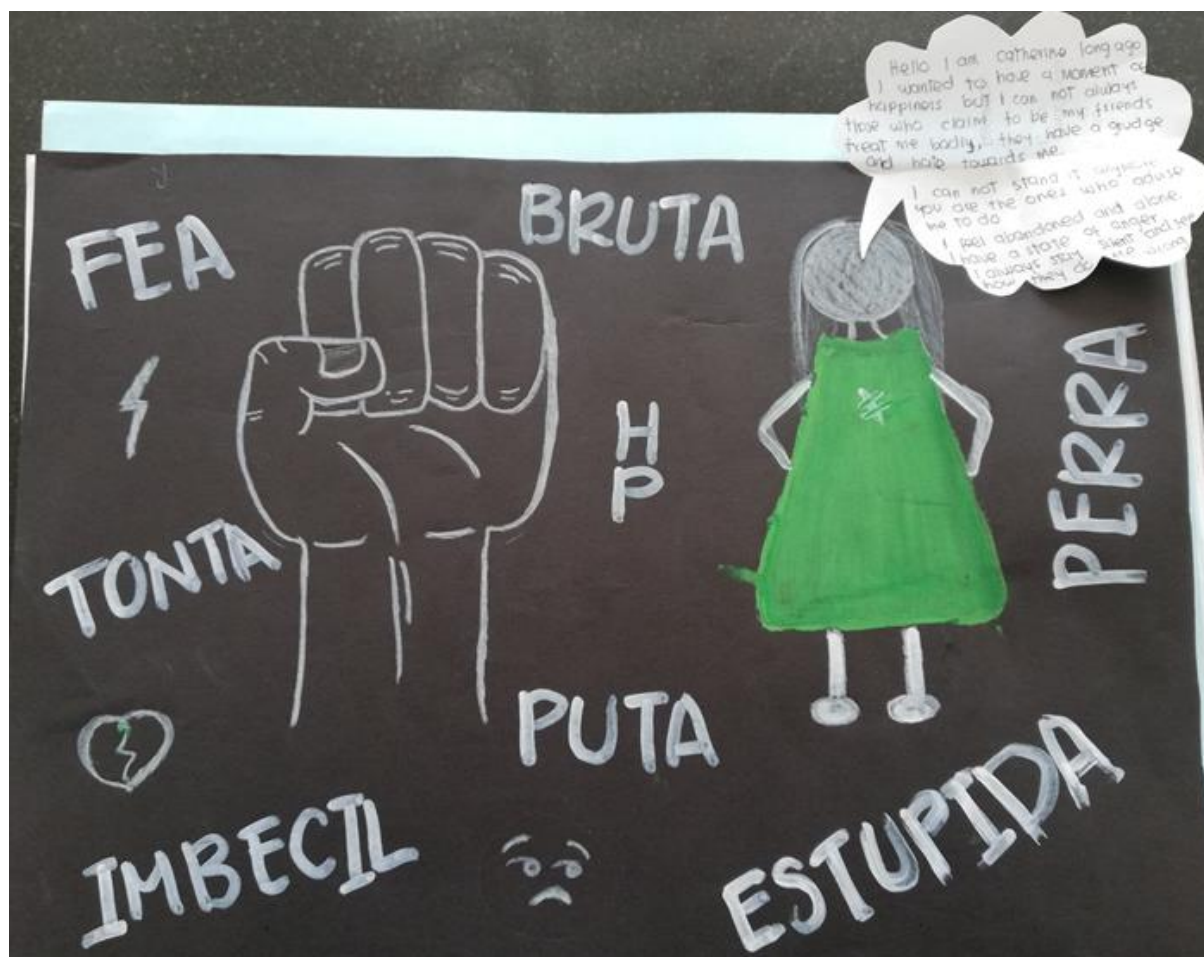 Hello I am catherine long ago
I wanted to have a moment of
happiness but I can not always
those who claim to be my friends
treat me badly, they have a grudge
and hate towards me.
I can not stand it
you are the ones who
me to do
I feel abandoned and alone.
I have a state of anger
I always stay silent and
how they do me wrong
FEA
BRUTA
H
P
PERRA
TONTA
PUTA
IMBECIL
ESTUPIDA